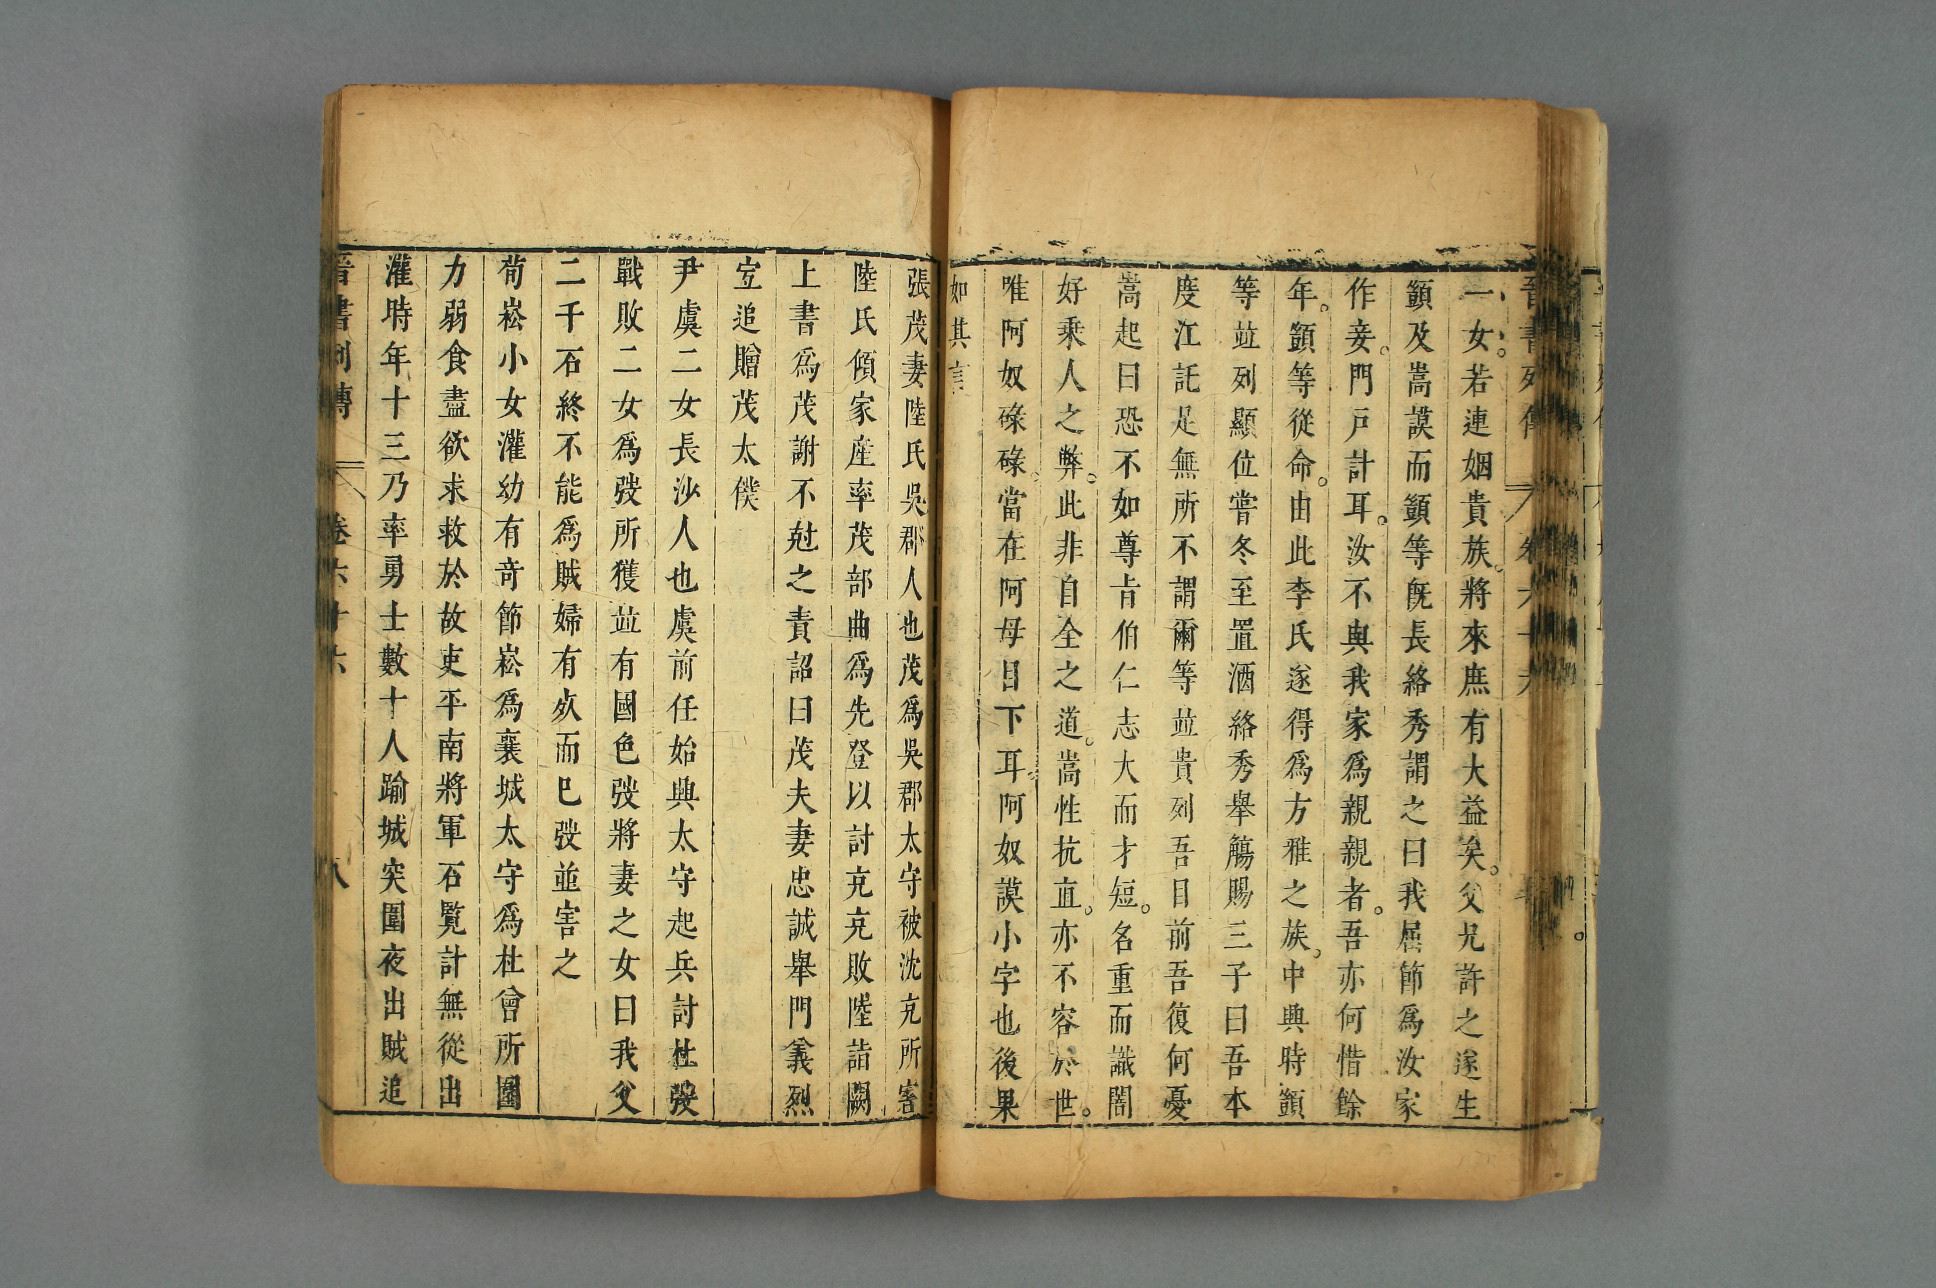 晉書列傳
卷六十六
一女若連姻貴族將來庶有大益矣父兄許之遂生
顗及嵩謨而顗等旣長絡秀謂之曰我屈節爲汝家
作妾門戶計耳汝不與我家爲親親者吾亦何惜餘
年顗等從命由此李氏遂得爲方雅之族中興時顗
等並列顯位嘗冬至置酒絡秀舉觴賜三子曰吾本
度江託足無所不謂爾等並貴列吾目前吾復何憂
嵩起曰恐不如尊旨伯仁志大而才短名重而識闇
好乘人之弊此非自全之道嵩性抗直亦不容於世
唯阿奴碌碌當在阿母目下耳阿奴謨小字也後果
如其言
張茂妻陸氏吳郡人也茂爲吳郡太守被沈充所害
陸氏傾家産率茂部曲爲先登以討充充敗陸詣闕
上書爲茂謝不尅之責詔曰茂夫妻忠誠舉門義烈
宜追贈茂太僕
尹虞二女長沙人也虞前任始興太守起兵討杜弢
戰敗二女爲弢所獲並有國色弢將妻之女曰我父
二千石終不能爲賊婦有死而已弢並害之
荀崧小女灌幼有奇節崧爲襄城太守爲杜曾所圍
力弱食盡欲求救於故吏平南將軍石覽計無從出
灌時年十三乃率勇士數十人踰城突圍夜出賊追
晉書列傳
卷六十六
八